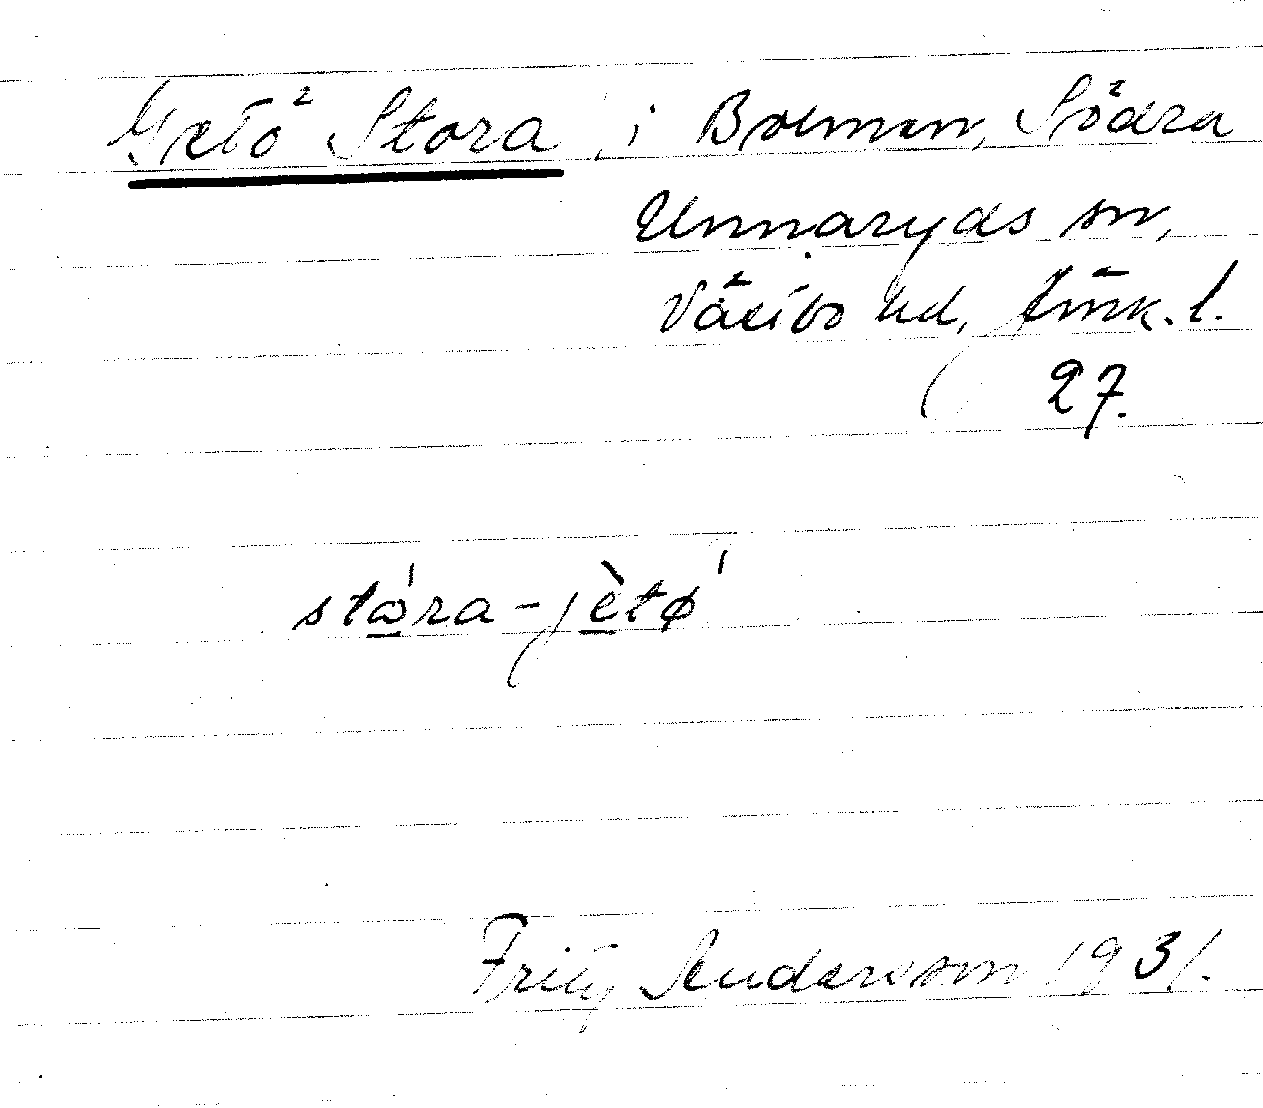 Getö Stora, i Bolmen, Södra
Unnaryds sn,
Västbo hd, Jönk. l.
27.
stώ̲ra-jè̲tø'
Fritz Andersson 1931.